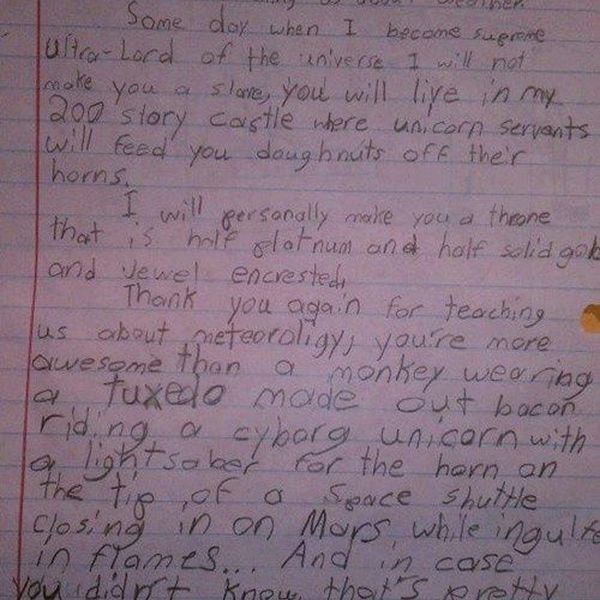 us about weather.
Some day when I become supreme
ultra-Lord of the universe I will not
make you a slave, you will live in my
200 story castle where unicorn servants
will feed you doughnuts off their
horns.
I will personally make you a throne
that is half platnum and half solid gold
and jewel encrested.
Thank you again for teaching
us about meteoroligy, you're more
awesome than a monkey wearing
a tuxedo made out bacon
riding a cyborg unicorn with
a lightsaber for the horn on
the tip of a space shuttle
closing in on Mars while ingulfe
in flames... And in case
you didn't know, that's pretty